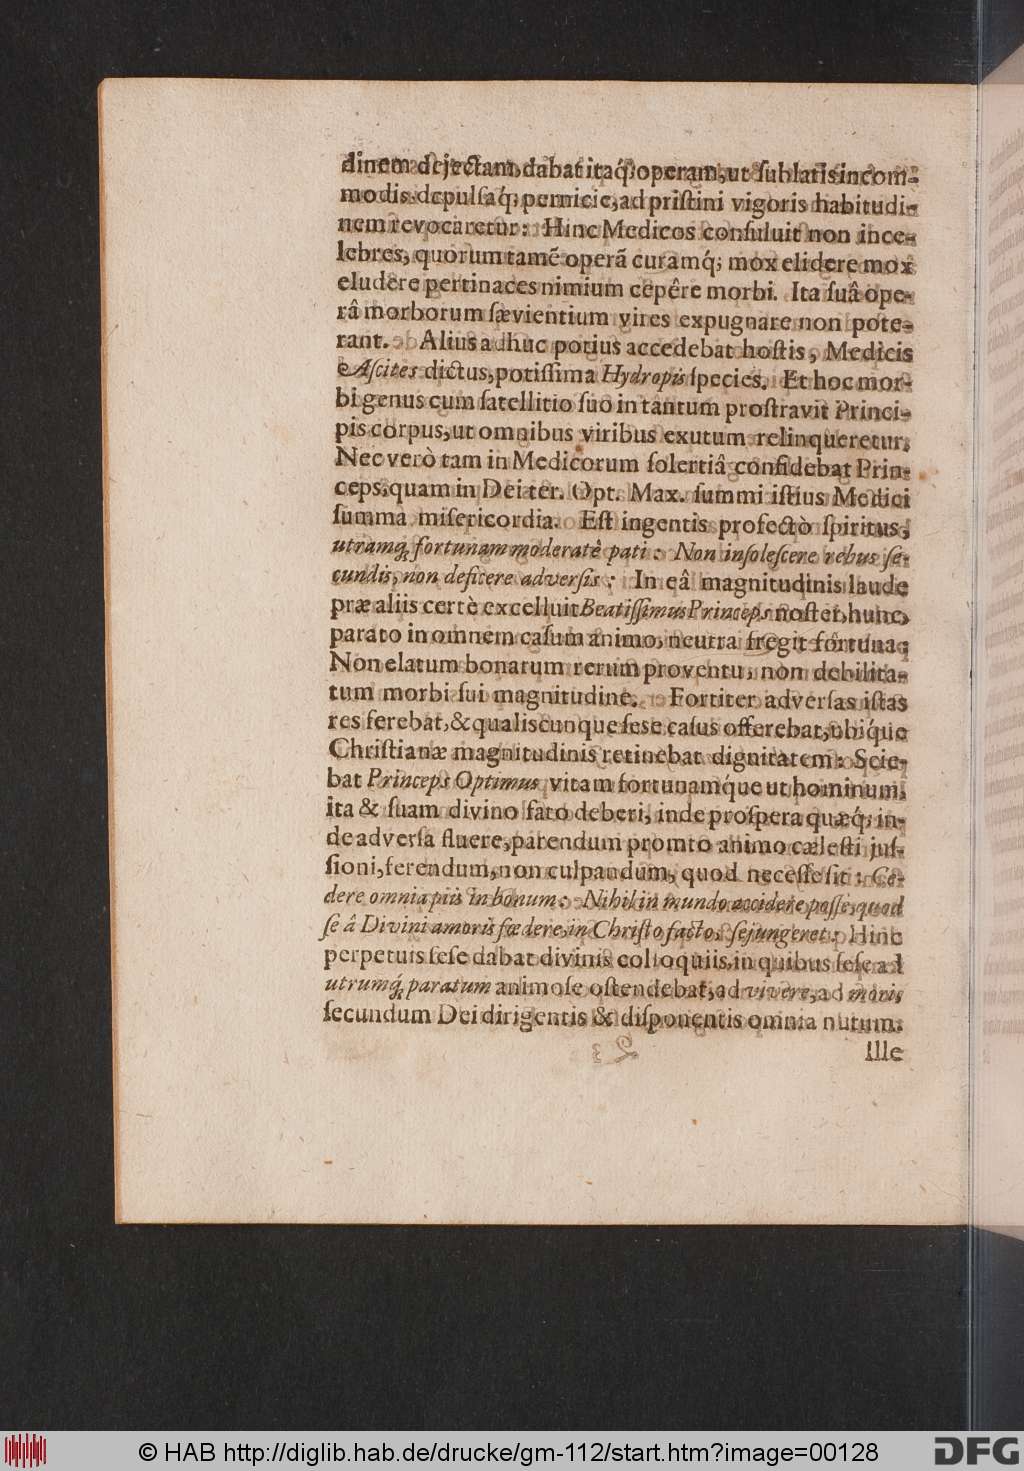 dinem dejectam, dabat itaq́; operam, ut ſublatis incom-
modis depulſaq́; pernicie, ad priſtini vigoris habitudi-
nem revocaretur: Hinc Medicos conſuluit non ince-
lebres, quorum tamẽ operã curamq́; mox elidere mox
eludere pertinaces nimium cepêre morbi. Ita ſuâ ope-
râ morborum ſævientium vires expugnare non pote-
rant. Alius adhuc potius accedebat hoſtis, Medicis
Aſcites dictus, potiſſima Hydropis ſpecies. Et hoc mor-
bi genus cum ſatellitio ſuo in tantum proſtravit Princi-
pis corpus, ut omnibus viribus exutum relinqueretur,
Nec verò tam in Medicorum ſolertiâ confidebat Prin-
ceps, quam in Dei ter. Opt. Max. ſummi iſtius Medici
ſumma miſericordia. Eſt ingentis profectò ſpiritus,
utramq́; fortunam moderatè pati: Non inſoleſcere rebus ſe-
cundis, non deficere adverſis: In eâ magnitudinis laude
præ aliis certè excelluit Beatiſſimus Princeps noſter, hunc,
parato in omnem caſum animo, neutra fregit fortuna,
Non elatum bonarum rerum proventu, non debilita-
tum morbi ſui magnitudine. Fortiter adverſas iſtas
res ferebat, & qualiscunque ſeſe caſus offerebat, ubiq́ue
Chriſtianæ magnitudinis retinebat dignitatem: Scie-
bat Princeps Optimus vitam fortunamq́ue ut hominum,
ita & ſuam divino fato deberi, inde proſpera quæq́; in-
de adverſa fluere, parendum promto animo cæleſti juſ-
ſioni, ferendum, non culpandum, quod neceſſe ſit: Ce-
dere omnia piis in bonum: Nihil in mundo accidere poſſe, quod
ſe â Divini amoris fœdere, in Chriſto facto, ſejungeret: Hinc
perpetuis ſeſe dabat divinis colloquiis, in quibus ſeſe ad
utrumq́; paratum animoſe oſtendebat, ad vivere, ad moris
ſecundum Dei dirigentis & diſponentis omnia nutum.
Ille
© HAB http://diglib.hab.de/drucke/gm-112/start.htm?image=00128
DFG